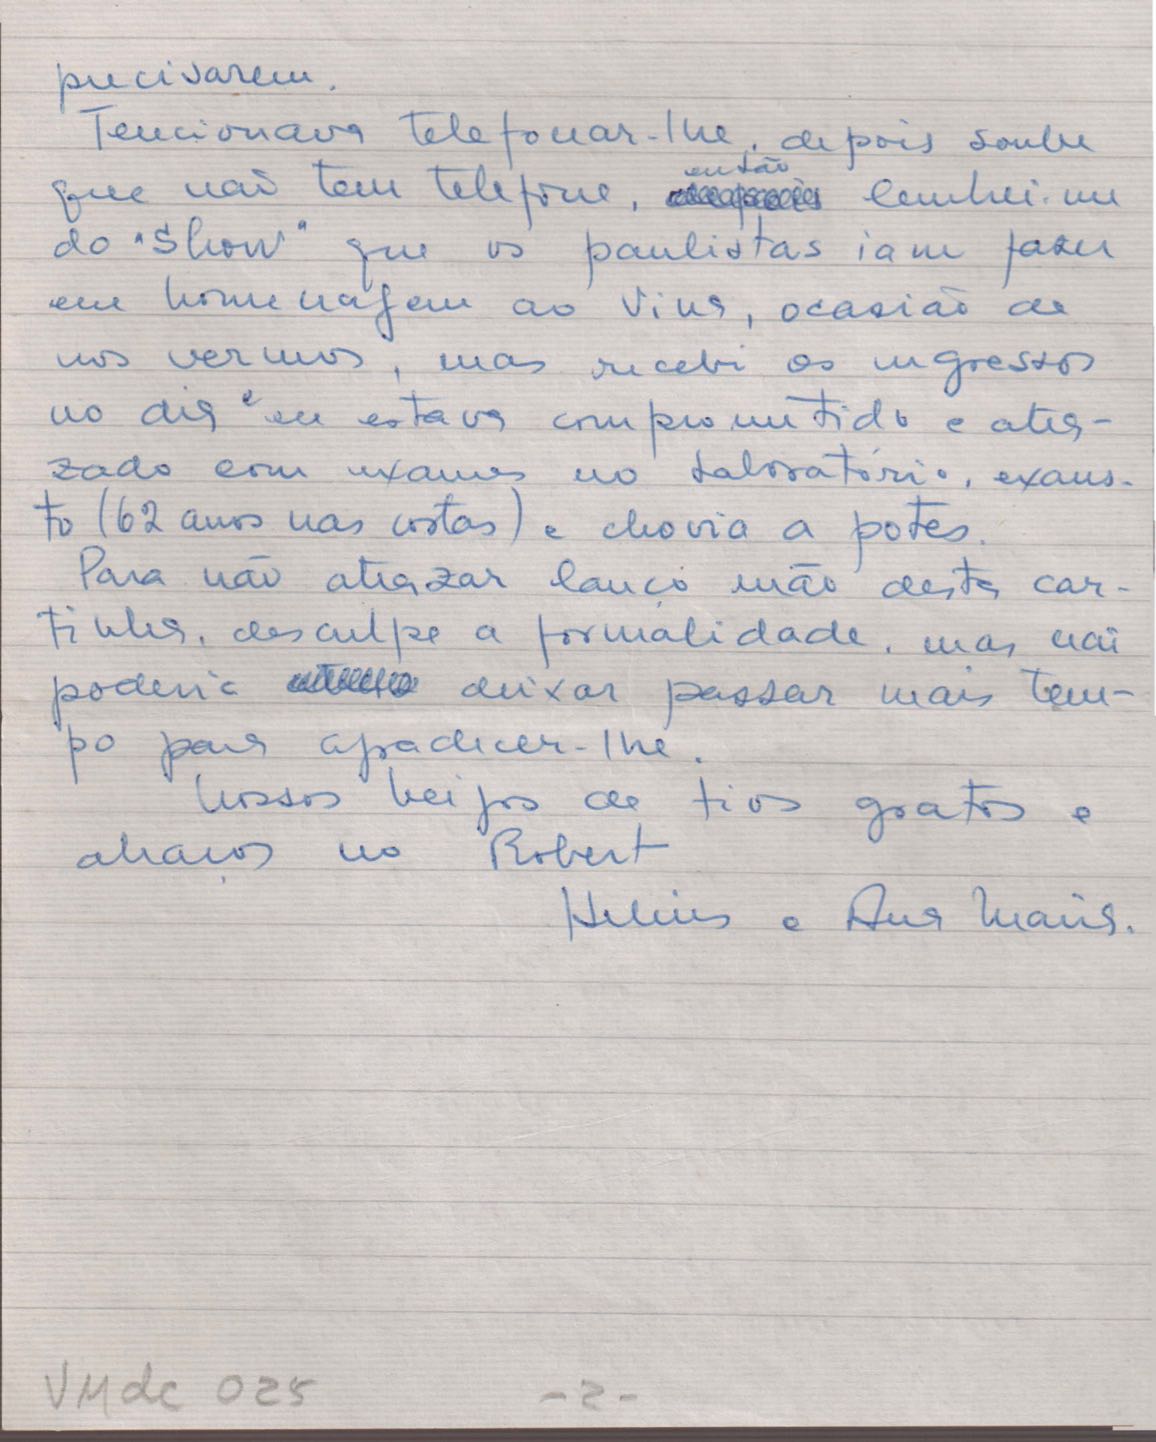 precisarem.
Tencionava telefonar-lhe, depois soube
que não tem telefone, então lembrei-me
do "Show" que os paulistas iam fazer
em homenagem ao Vina, ocasião de
nos vermos, mas recebi os ingressos
no dia e eu estava comprometido e atra-
zado com exames no Laboratório, exaus-
to (62 anos nas costas) e chovia a potes.
Para não atrazar lanço mão desta car-
tinha, desculpe a formalidade, mas não
poderia deixar passar mais tem-
po para agradecer-lhe.
Nossos beijos de tios gratos e
abraços no Robert
Helius e Ana Maria.
VMdc 025 -2-